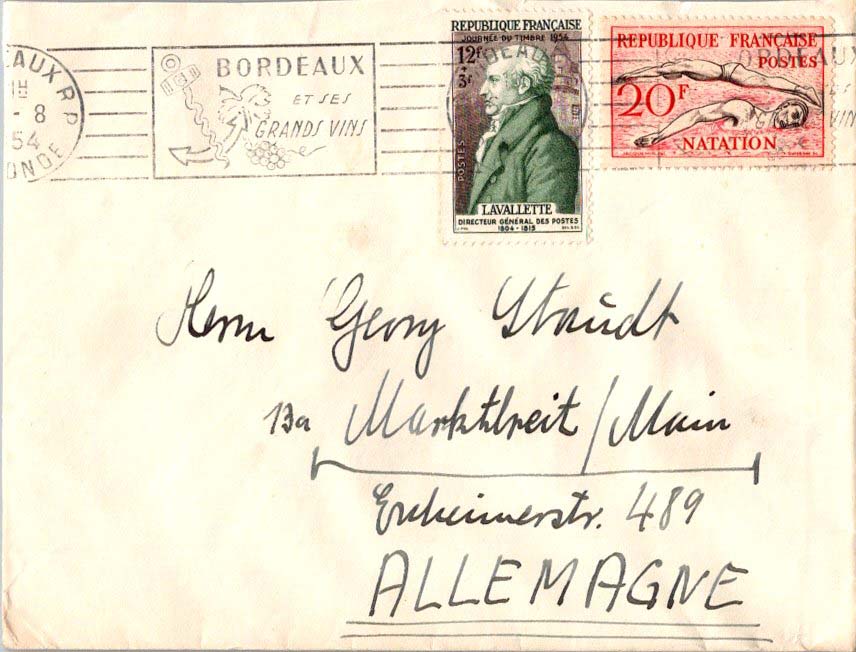 EAUX R.P
- 8
54
ONDE
BORDEAUX
ET SES
GRANDS VINS
REPUBLIQUE FRANÇAISE
JOURNÉE DU TIMBRE 1954
12f
+3f
POSTES
LAVALLETTE
DIRECTEUR GÉNÉRAL DES POSTES
1804 - 1815
REPUBLIQUE FRANÇAISE
POSTES
20F
NATATION
BORDEAUX
Herrn Georg Staudt
13a Marktbreit/Main
Enheimerstr. 489
ALLEMAGNE